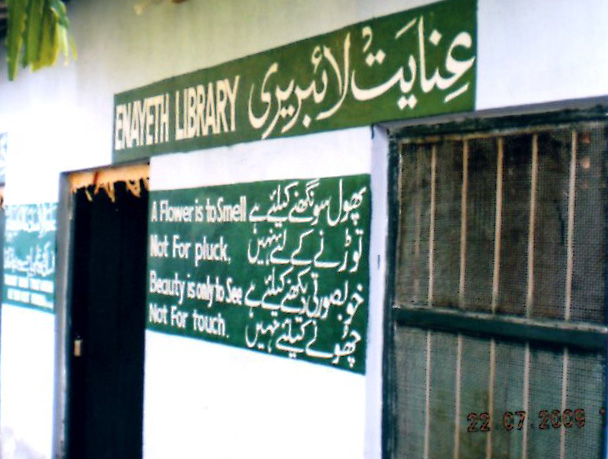 ENAYETH LIBRARY عنایت لائبریری
A Flower is to Smell پھول سونگھنے کیلئے ہے
Not For pluck, توڑنے کے لئے نہیں
Beauty is only to See خوبصورتی دیکھنے کیلئے ہے
Not For touch. چھونے کیلئے نہیں
22.07.2009